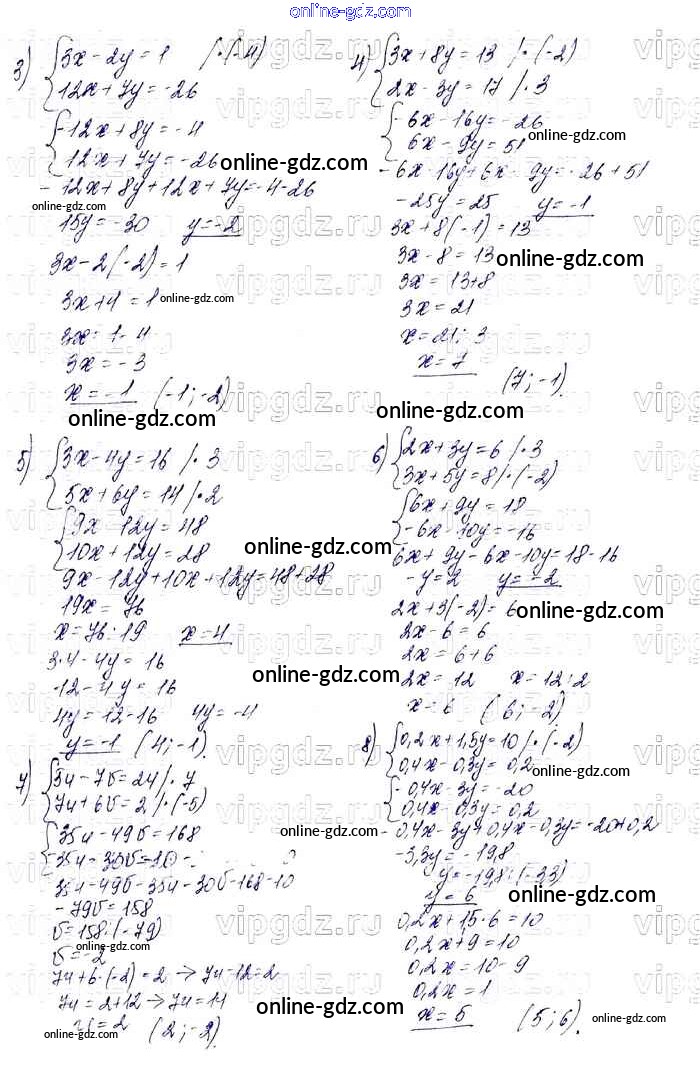 online-gdz.com
3) {3x - 2y = 1 /·(-4)
12x + 7y = -26
{-12x + 8y = -4
12x + 7y = -26
-12x + 8y + 12x + 7y = -4 - 26
15y = -30 y = -2
3x - 2(-2) = 1
3x + 4 = 1
3x = 1 - 4
3x = -3
x = -1 (-1; -2)
4) {3x + 8y = 13 /·(-2)
2x - 3y = 17 /·3
{-6x - 16y = -26
6x - 9y = 51
-6x - 16y + 6x - 9y = -26 + 51
-25y = 25 y = -1
3x + 8(-1) = 13
3x - 8 = 13
3x = 13 + 8
3x = 21
x = 21 : 3
x = 7 (7; -1).
5) {3x - 4y = 16 /·3
5x + 6y = 14 /·2
{9x - 12y = 48
10x + 12y = 28
9x - 12y + 10x + 12y = 48 + 28
19x = 76
x = 76 : 19 x = 4
3·4 - 4y = 16
12 - 4y = 16
4y = 12 - 16 4y = -4
y = -1 (4; -1).
6) {2x + 3y = 6 /·3
3x + 5y = 8 /·(-2)
{6x + 9y = 18
-6x - 10y = -16
6x + 9y - 6x - 10y = 18 - 16
-y = 2 y = -2
2x + 3(-2) = 6
2x - 6 = 6
2x = 6 + 6
2x = 12 x = 12 : 2
x = 6 (6; -2)
7) {5u - 7v = 24 /·7
7u + 6v = 2 /·(-5)
{35u - 49v = 168
-35u - 30v = -10
35u - 49v - 35u - 30v = 168 - 10
-79v = 158
v = 158 : (-79)
v = -2
7u + 6·(-2) = 2 → 7u - 12 = 2
7u = 2 + 12 → 7u = 14
u = 2 (2; -2).
8) {0,2x + 1,5y = 10 /·(-2)
0,4x - 0,3y = 0,2
{-0,4x - 3y = -20
0,4x - 0,3y = 0,2
-0,4x - 3y + 0,4x - 0,3y = -20 + 0,2
-3,3y = -19,8
y = -19,8 : (-3,3)
y = 6
0,2x + 1,5·6 = 10
0,2x + 9 = 10
0,2x = 10 - 9
0,2x = 1
x = 5 (5; 6).